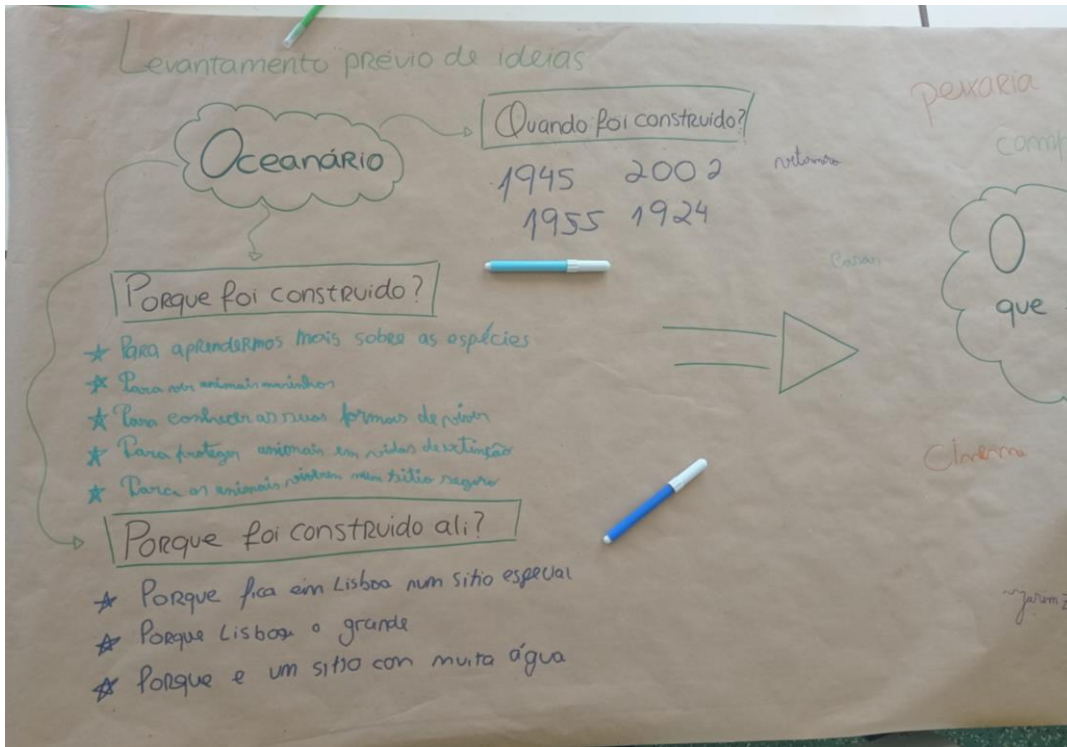 Levantamento prévio de ideias
Oceanário
Quando foi construido?
1945 2002
1955 1924
Porque foi construido?
Para aprendermos mais sobre as espécies
Para ver animais marinhos
Para conhecer as suas formas de viver
Para proteger animais em vidas de extinção
Para os animais viverem num sitio seguro
Porque foi construido ali?
Porque fica em Lisboa num sitio especial
Porque Lisboa e grande
Porque e um sitio con muita água
peixaria
O
que